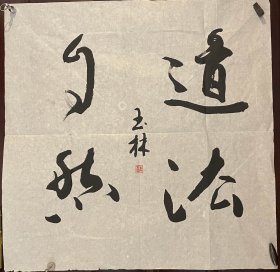 道法
自然
玉林